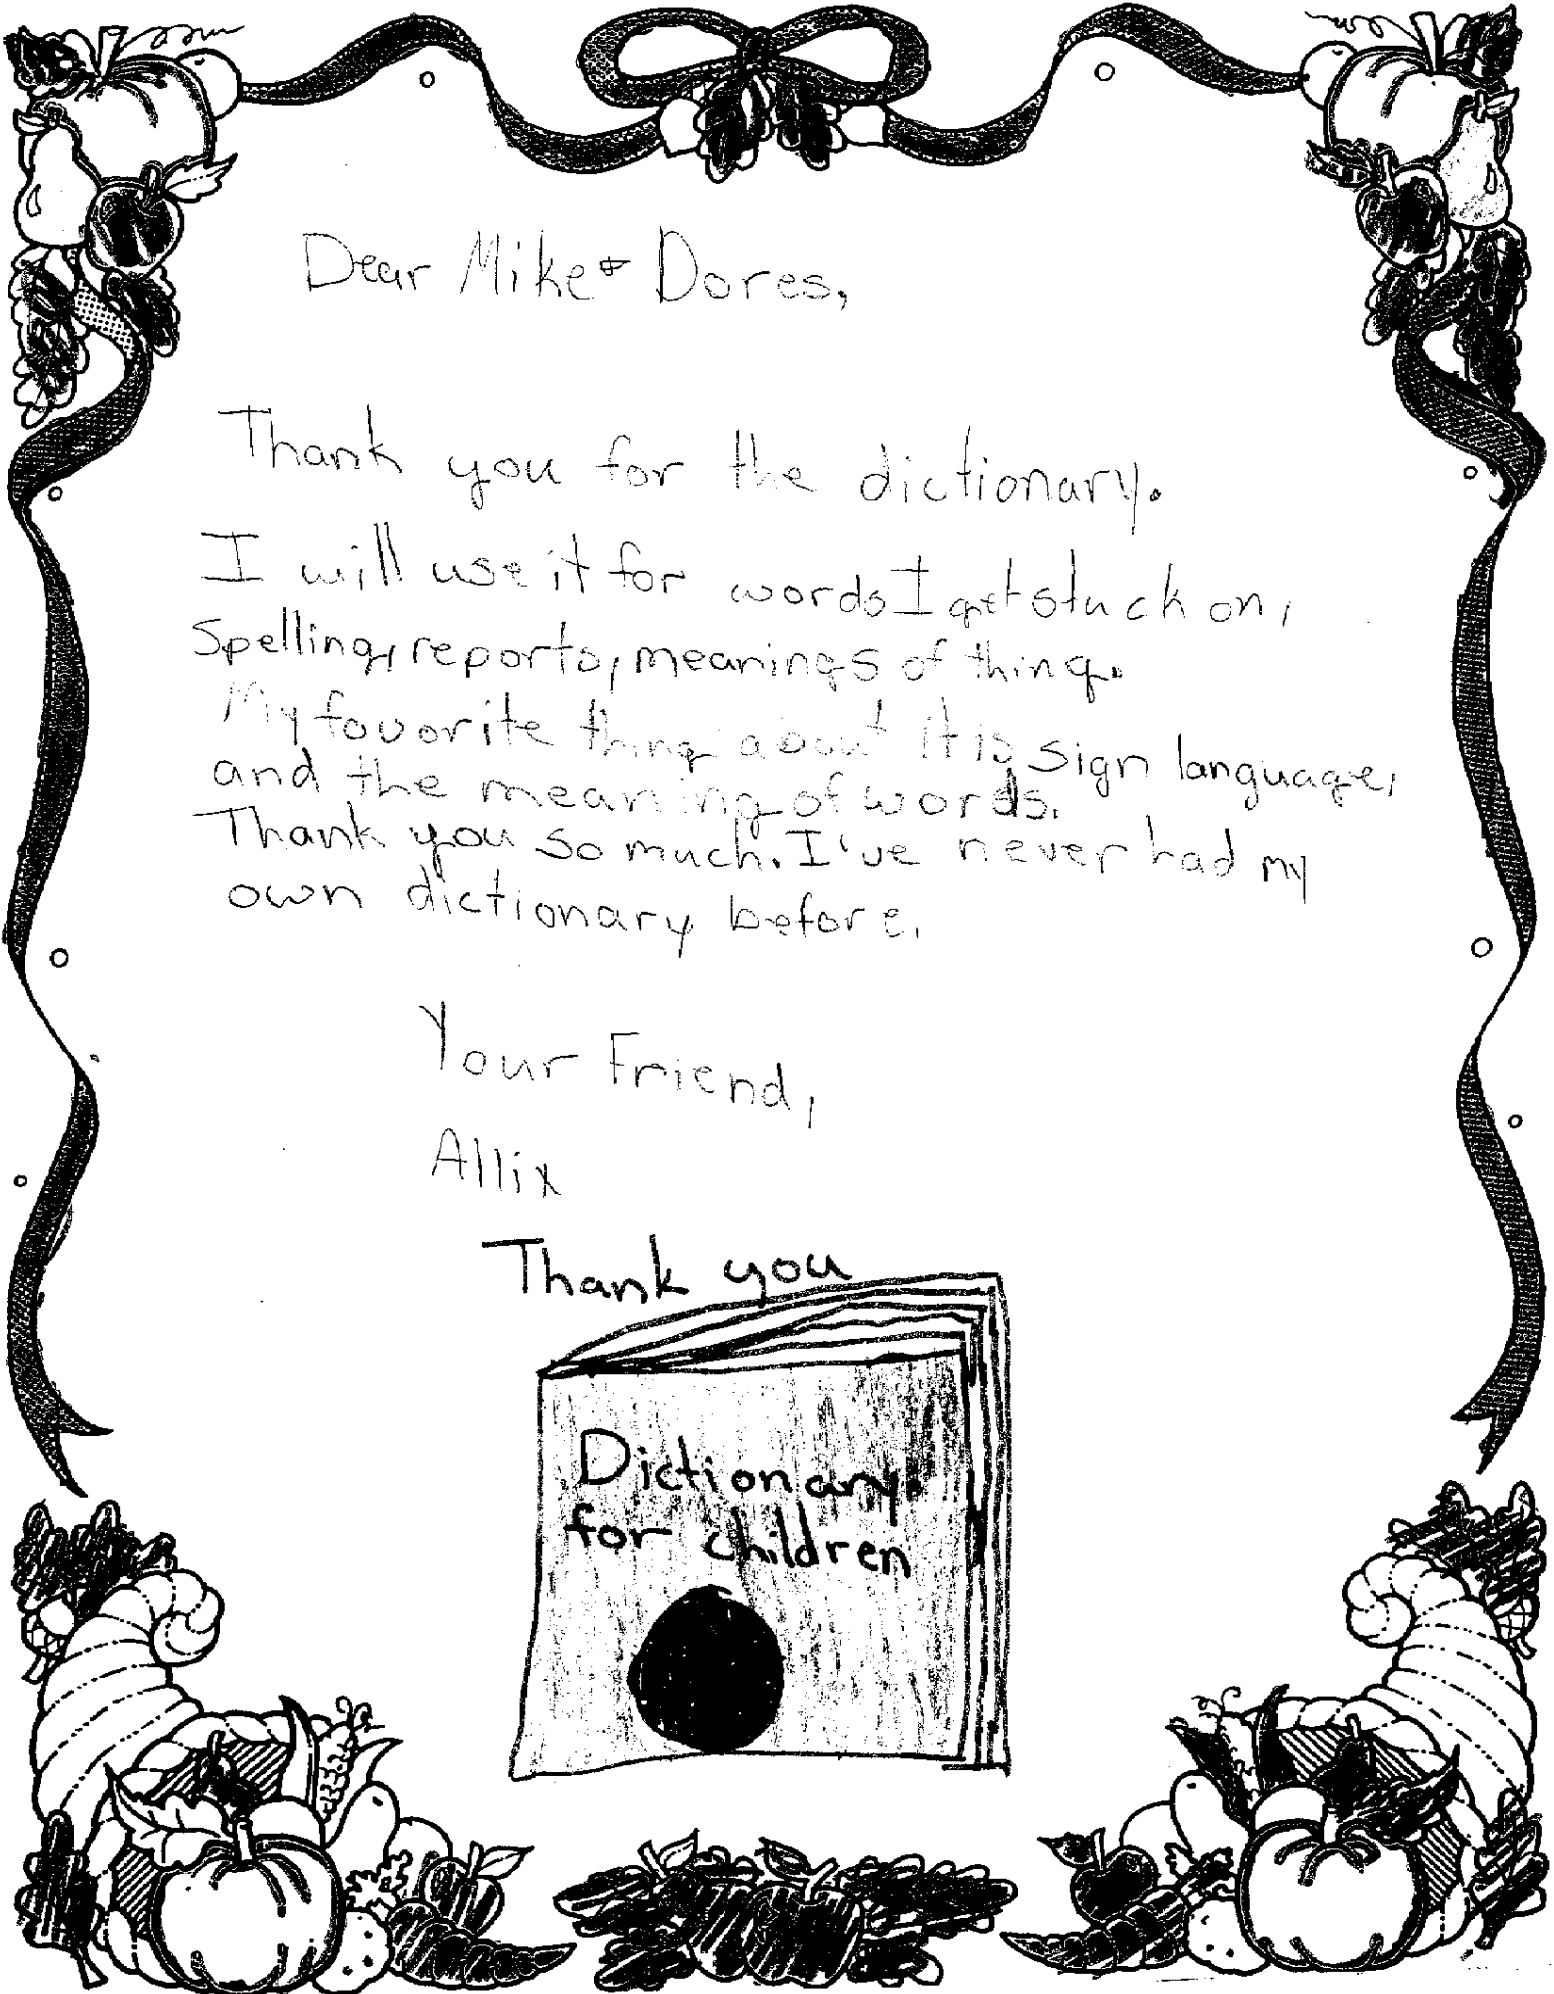 Dear Mike & Dores,
Thank you for the dictionary.
I will use it for words I get stuck on,
Spelling, reports, meanings of thing.
My favorite thing about it is sign language,
and the meaning of words.
Thank you so much. I've never had my
own dictionary before.
Your Friend,
Allix
Thank you
Dictionary
for children